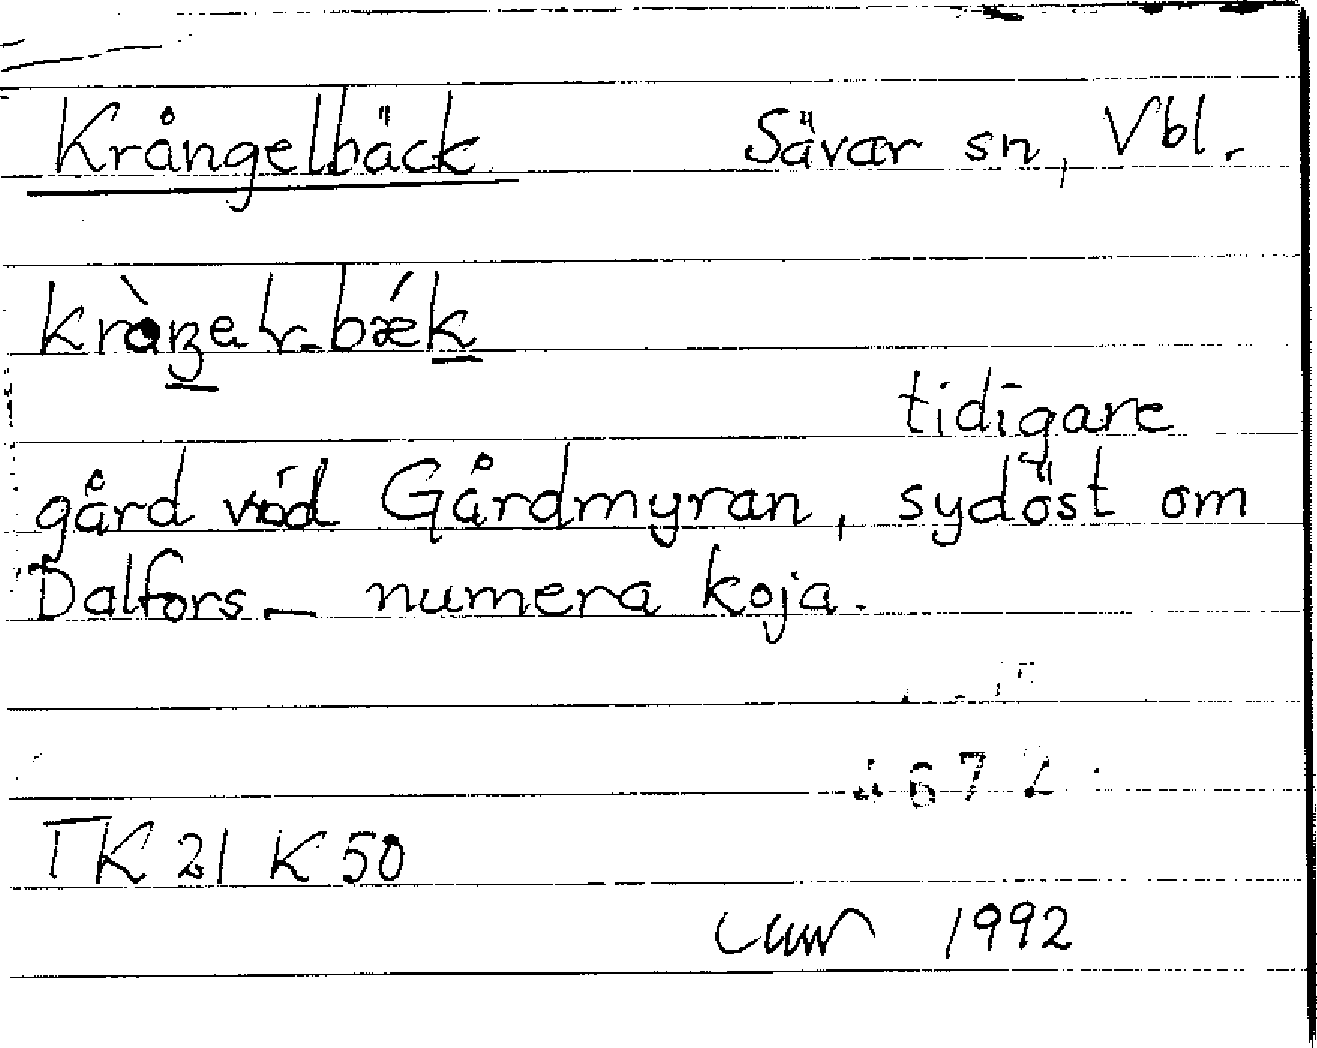 Krångelbäck Sävar sn, Vbl.
tidigare
gård vid Gårdmyran, sydöst om
Dalfors – numera koja.
672
TK 21 K 50
1992